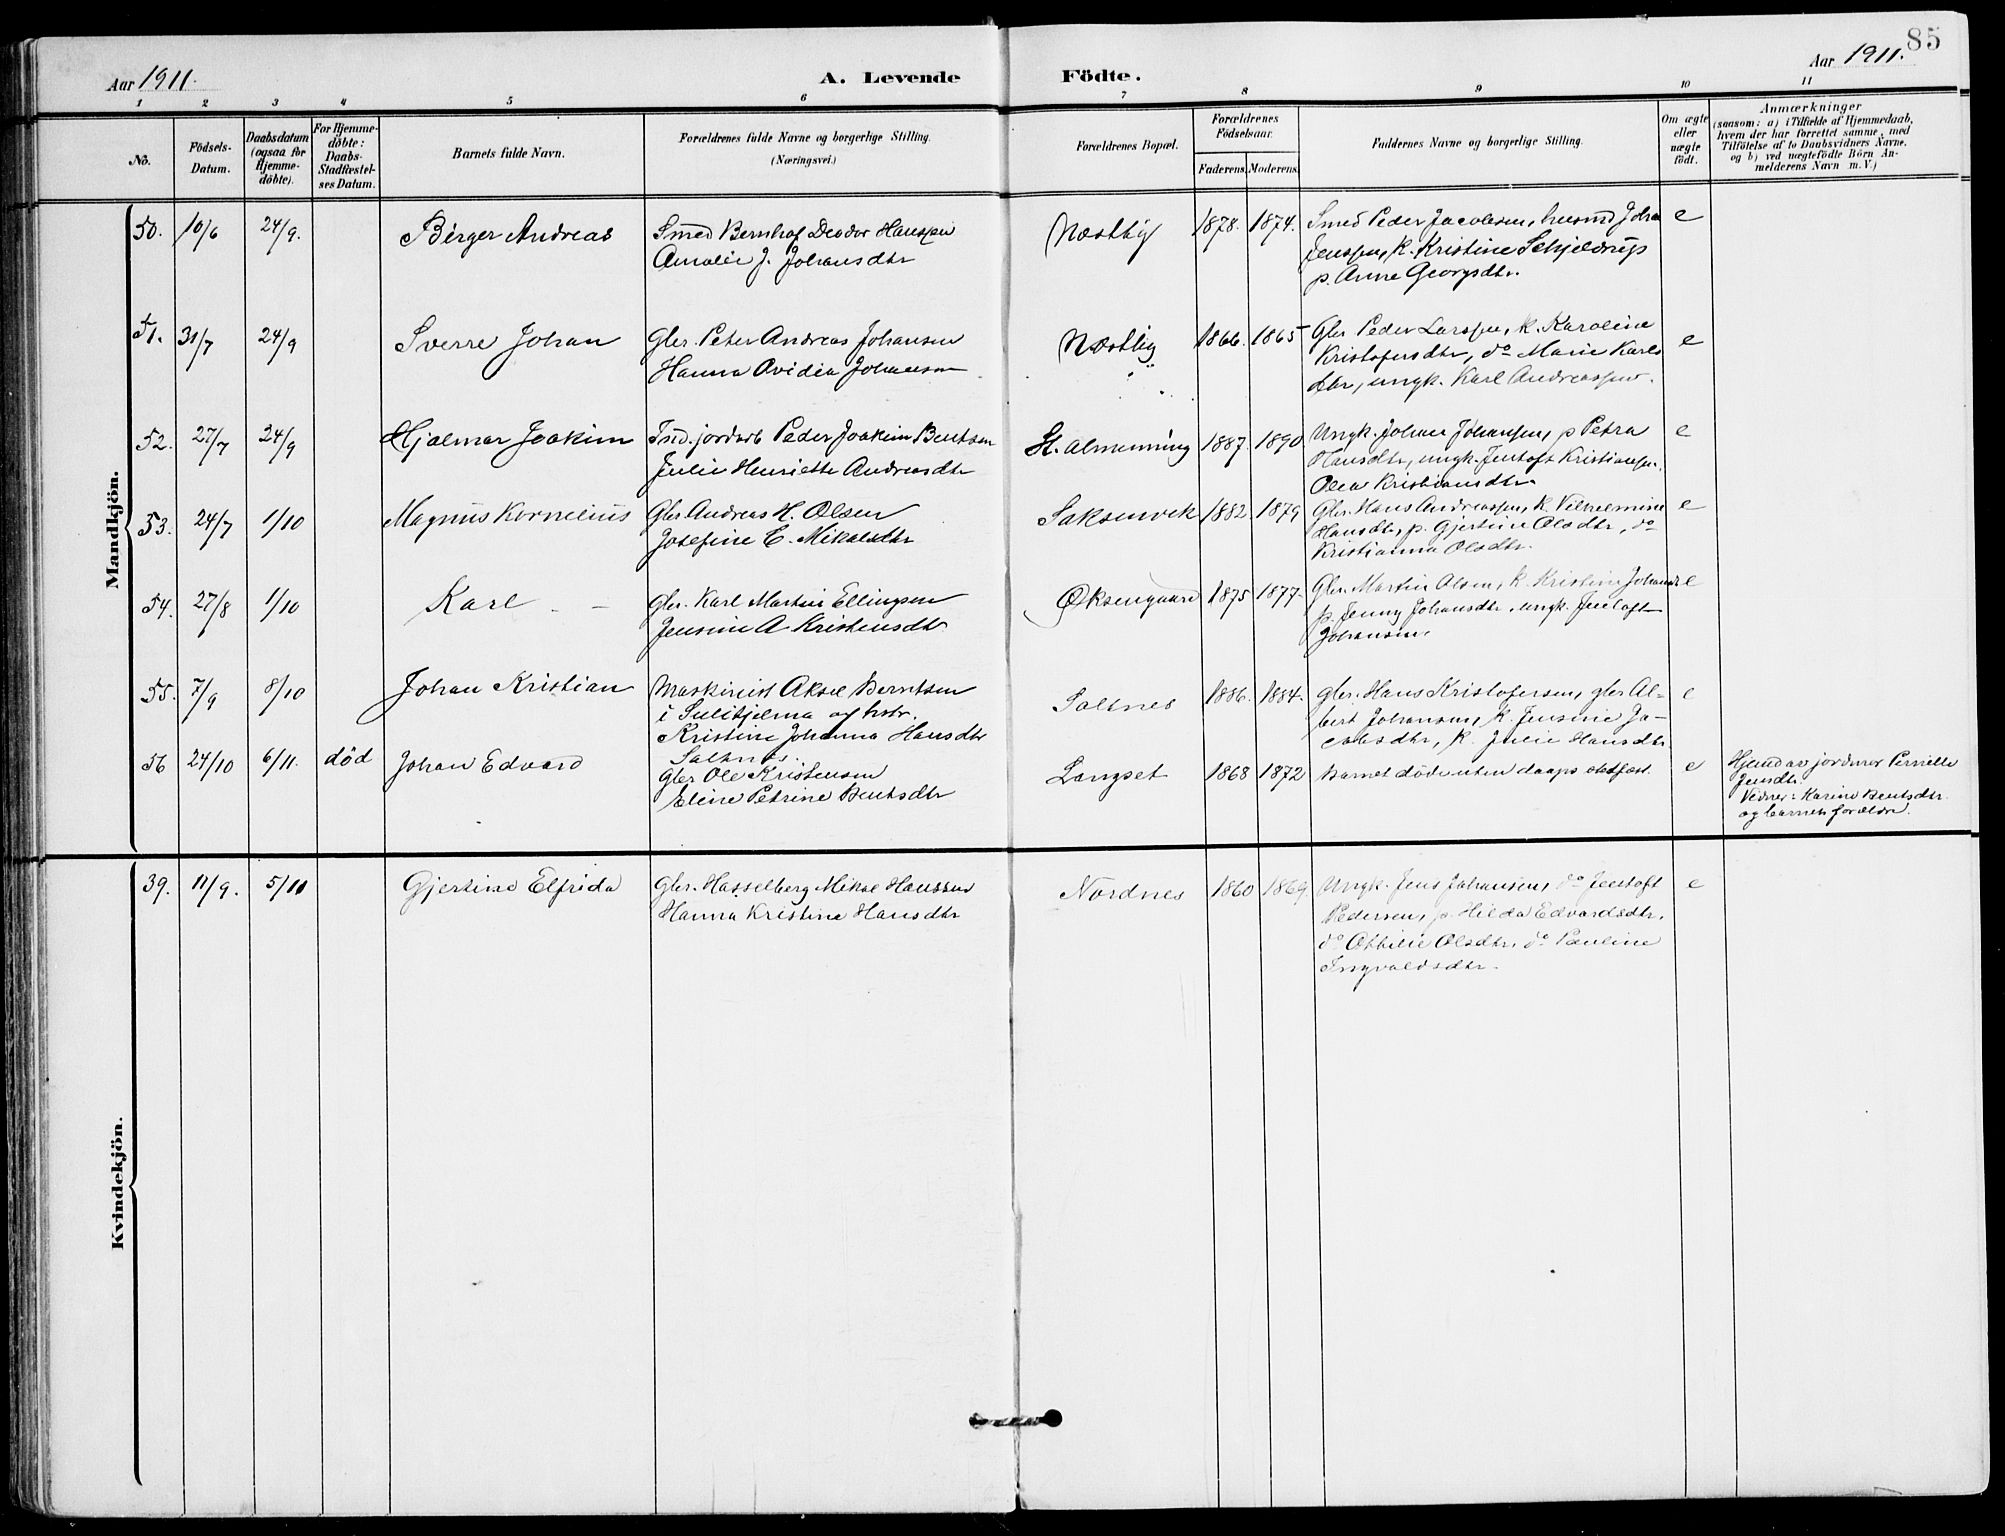 85
Aar 1911.
A. Levende
Födte.
Aar 1911.
1 2 3 4 5 6 7 8 9 10 11
No.
Födsels-
Datum.
Daabsdatum
(ogsaa for
Hjemme-
döbte).
For Hjemme-
döbte:
Daabs-
Stadfæstel-
ses Datum.
Barnets fulde Navn.
Forældrenes fulde Navne og borgerlige Stilling.
(Næringsvei.)
Forældrenes Bopæl.
Forældrenes
Födselsaar.
Faderens. Moderens.
Faddernes Navne og borgerlige Stilling.
Om ægte
eller
uægte
födt.
Anmærkninger
(saasom: a) i Tilfælde af Hjemmedaab,
hvem der har forrettet samme, med
Tilföielse af to Daabsvidners Navne,
og b) ved uægtefödte Börn An-
melderens Navn m. V.)
Mandkjön.
50. 10/6 24/9. Birger Andreas
Smed Bernhof Deodor Hanssen
Amalie J. Johansdtr
Næstby 1878. 1874.
Smed Peder Jacobsen, husmd Johan
Jenssen, k. Kristine Schjeldrup
p. Anne Georgsdtr.
e
51. 31/7 24/9 Sverre Johan
Gbr. Peter Andreas Johansen
Hanna Ovidia Johansen
Næstby 1866. 1865
Gbr Peder Larssen, k. Karoline
Kristofersdtr, do Marie Karls
dtr, ungk. Karl Andreassen.
e
52. 27/7 24/9 Hjalmar Joakim
Ind. jordarb Peder Joakim Bentsen
Julie Henriette Andreasdtr
St. Almenning 1887. 1890
Ungk. Johan Johansen, p Petra
Hansdtr, ungk. Jentoft Kristiansen,
Olea Kristiansdtr.
e
53. 24/7 1/10 Magnus Kornelius
Gbr Andreas H. Olsen
Josefine C. Mikalsdtr
Saksenvik 1882. 1879
Gbr. Hans Andreassen, k. Vilhelmine
Hansdtr, p. Gjertine Olsdtr, do
Kristianna Olsdtr.
e
54. 27/8 1/10 Karl
Gbr. Karl Martin Ellingsen
Jensine A Kristensdtr
Øksengaard 1875 1877.
Gbr. Martin Olsen, k. Kristine Johansd
p. Jenny Johansdtr, ungk. Jentoft
Johansen.
e
55. 7/9 8/10 Johan Kristian
Maskinist Aksel Berntsen
i Sulitjelma og hstr.
Kristine Johanna Hansdtr
Saltnes.
Saltnes 1886. 1884.
gbr. Hans Kristofersen, gbr Al-
bert Johansen, k. Jensine Ja-
cobsdtr, k. Julie Hansdtr.
e
56 24/10 6/11. död Johan Edvard
Gbr Ole Kristensen
Eline Petrine Bentsdtr
Langset 1868 1872
Barnet döde uten daaps stadfæst.
e
Hjmd av jordmor Pernille
Jensdtr.
Vidner: Karine Bentsdtr.
og barnets forældre.
Kvindekjön.
39. 11/9. 5/11 Gjertine Elfrida
Gbr. Hasselberg Mikal Hanssen
Hanna Kristine Hansdtr
Nordnes 1860 1869
Ungk. Jens Johansen, do Jentoft
Pedersen, p. Hilda Edvardsdtr,
do Ottilie Olsdtr, do Pauline
Ingvaldsdtr.
e